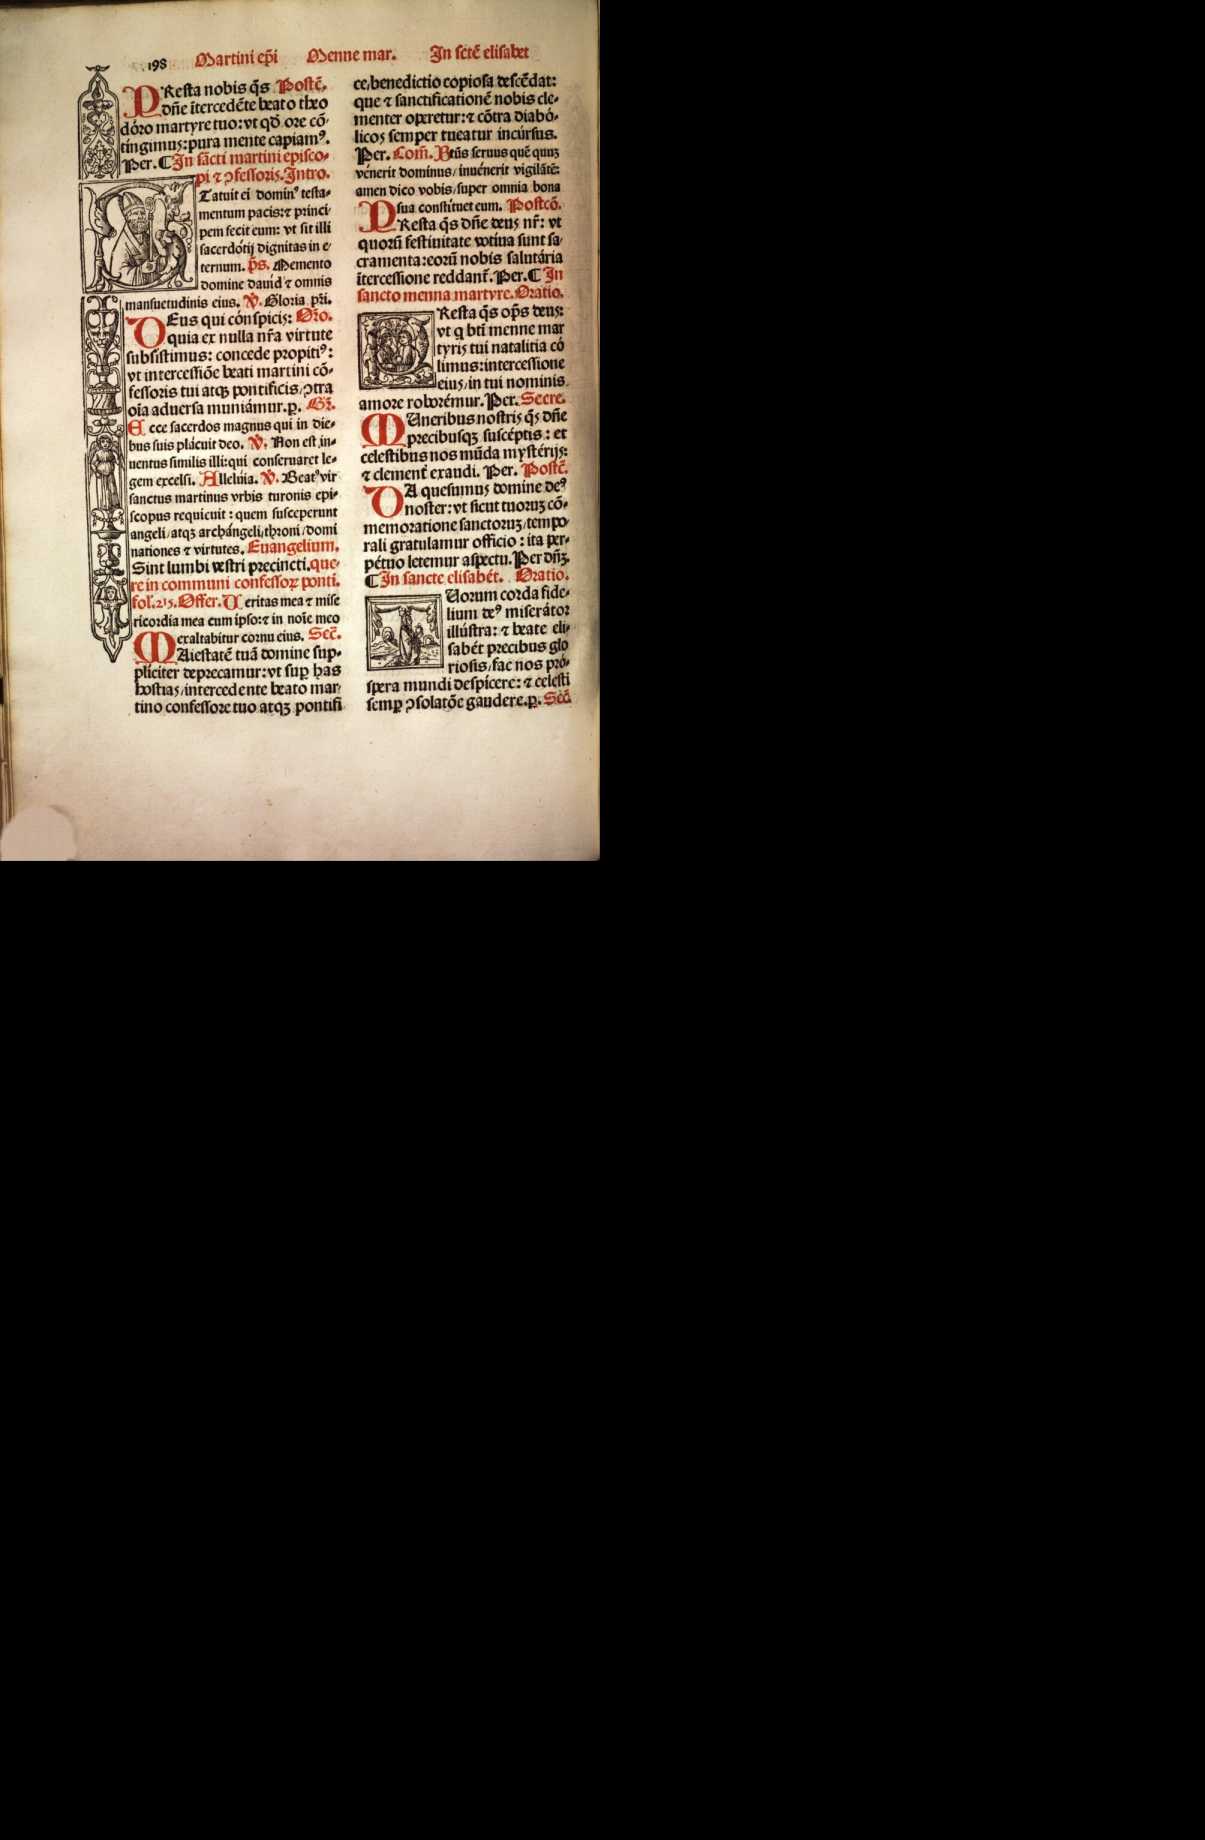 198 Martini ep̄i Menne mar. In sctē elisabet
PResta nobis q̄s Postcō̄.
dn̄e ītercedēte beato theo
dóro martyre tuo: vt qd̄ ore cō-
tingimus: pura mente capiamꝰ.
Per. ¶ In sācti martini episco-
pi ⁊ ꝯfessoris. Intro.
Tatuit ei dominꝰ testa-
mentum pacis: ⁊ princi-
pem fecit eum: vt sit illi
sacerdótij dignitas in e-
ternum. ps̄. Memento
domine dauid ⁊ omnis
mansuetudinis eius. ℣. Gloria pr̄i.
DEus qui cónspicis: Or̄o.
quia ex nulla nr̄a virtute
subsistimus: concede propitiꝰ:
vt intercessiōe beati martini cō-
fessoris tui atqꝫ pontificis/ꝯtra
oīa aduersa muniámur. p. Gr̄.
Ecce sacerdos magnus qui in die-
bus suis plácuit deo. ℣. Non est in-
uentus similis illi: qui conseruaret le-
gem excelsi. Allelúia. ℣. Beatꝰ vir
sanctus martinus vrbis turonis epi-
scopus requieuit: quem susceperunt
angeli/atqꝫ archángeli/throni/domi
nationes ⁊ virtutes. Euangelium.
Sint lumbi vestri precincti. que-
re in communi confessoꝝ ponti.
fol. 215. Offer. Ueritas mea ⁊ mise
ricordia mea cum ipso: ⁊ in noīe meo
exaltabitur cornu eius. Sec̄.
MAiestatē tuā domine sup-
pliciter deprecamur: vt suꝑ has
hostias/intercedente beato mar-
tino confessore tuo atqꝫ pontifi
ce/benedictio copiosa descēdat:
que ⁊ sanctificationē nobis cle-
menter operetur: ⁊ cōtra diabó-
licos semper tueatur incúrsus.
Per. Com̄. Btūs seruus quē quuꝫ
vénerit dominus/inuénerit vigilātē:
amen dico vobis/super omnia bona
sua constítuet eum. Postcō.
PResta q̄s dn̄e deus nr̄: vt
quorū festiuitate votiua sunt sa-
cramenta: eorū nobis salutária
ītercessione reddanť. Per. ¶ In
sancto menna martyre. Oratio.
Resta q̄s op̄s deus:
vt q btī menne mar
tyris tui natalitia có
limus: intercessione
eius/in tui nominis
amore roborémur. Per. Secre.
MUneribus nostris q̄s dn̄e
precibusqꝫ suscéptis: et
celestibus nos mūda mystérijs:
⁊ clementʼ exaudi. Per. Postcō̄.
DA quesumus domine deꝰ
noster: vt sicut tuoruꝫ cō-
memoratione sanctoruꝫ/tempo-
rali gratulamur officio: ita per-
pétuo letemur aspectu. Per dn̄ꝫ.
¶ In sancte elisabét. Oratio.
Uorum corda fide-
lium deꝰ miserátor
illústra: ⁊ beate eli-
sabét precibus glo
riosis/fac nos pró-
spera mundi despícere: ⁊ celesti
semꝑ ꝯsolatōe gaudere. p. Sec̄.